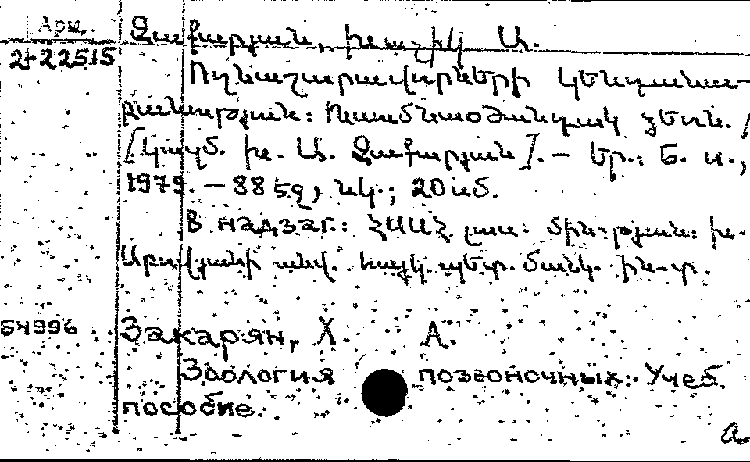 Арм.
Զաքարյան, Խաչիկ Ա.
2-22515
Ողնաշարավորների կենդանա-
բանություն: Ուսումնաօժանդակ ձեռն. /
[Կազմ. Խ. Ա. Զաքարյան]. – Եր.: Բ. и.,
1979. – 88 էջ, նկ.; 20 սմ.
В надзаг.: ՀՍՍՀ լուս. մին-թյուն. Խ.
Աբովյանի անվ. հայկ. պետ. մանկ. ին-տ.
54996
Закарян, Х. А.
Зоология позвоночных: Учеб.
пособие.